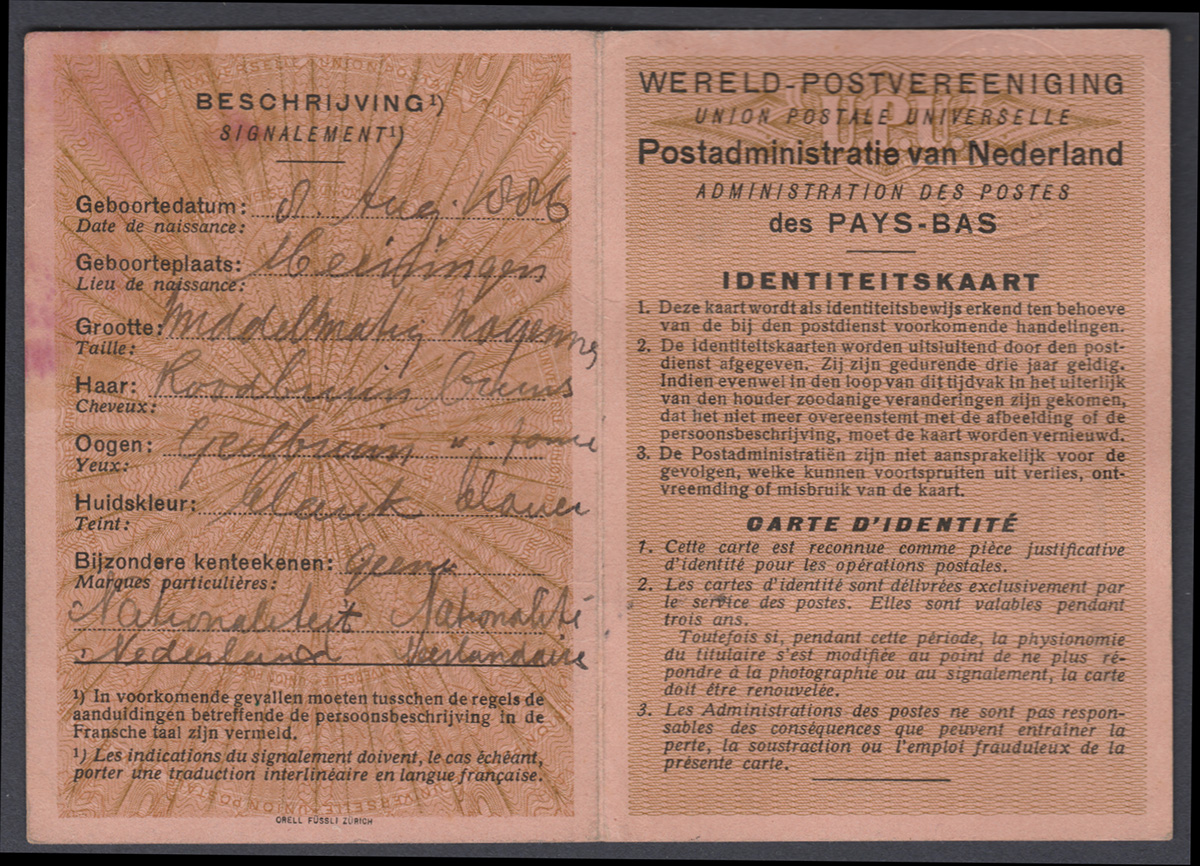 BESCHRIJVING¹)
SIGNALEMENT¹)
Geboortedatum: 8. Aug. 1886
Date de naissance:
Geboorteplaats:
Lieu de naissance:
Grootte: Middelmatig Moyenne
Taille:
Haar: Roodbruin bruns
Cheveux:
Oogen: Geelbruin
Yeux:
Huidskleur: blank
Teint:
Bijzondere kenteekenen: geene
Marques particulières:
Nationaliteit Nationalité
Nederland Néerlandaise
¹) In voorkomende gevallen moeten tusschen de regels de
aanduidingen betreffende de persoonsbeschrijving in de
Fransche taal zijn vermeld.
¹) Les indications du signalement doivent, le cas échéant,
porter une traduction interlinéaire en langue française.
ORELL FÜSSLI ZÜRICH
WERELD-POSTVEREENIGING
UNION POSTALE UNIVERSELLE
UPU
Postadministratie van Nederland
ADMINISTRATION DES POSTES
des PAYS-BAS
IDENTITEITSKAART
1. Deze kaart wordt als identiteitsbewijs erkend ten behoeve
van de bij den postdienst voorkomende handelingen.
2. De identiteitskaarten worden uitsluitend door den post-
dienst afgegeven. Zij zijn gedurende drie jaar geldig.
Indien evenwel in den loop van dit tijdvak in het uiterlijk
van den houder zoodanige veranderingen zijn gekomen,
dat het niet meer overeenstemt met de afbeelding of de
persoonsbeschrijving, moet de kaart worden vernieuwd.
3. De Postadministratiën zijn niet aansprakelijk voor de
gevolgen, welke kunnen voortspruiten uit verlies, ont-
vreemding of misbruik van de kaart.
CARTE D'IDENTITÉ
1. Cette carte est reconnue comme pièce justificative
d'identité pour les opérations postales.
2. Les cartes d'identité sont délivrées exclusivement par
le service des postes. Elles sont valables pendant
trois ans.
Toutefois si, pendant cette période, la physionomie
du titulaire s'est modifiée au point de ne plus ré-
pondre à la photographie ou au signalement, la carte
doit être renouvelée.
3. Les Administrations des postes ne sont pas respon-
sables des conséquences que peuvent entraîner la
perte, la soustraction ou l'emploi frauduleux de la
présente carte.